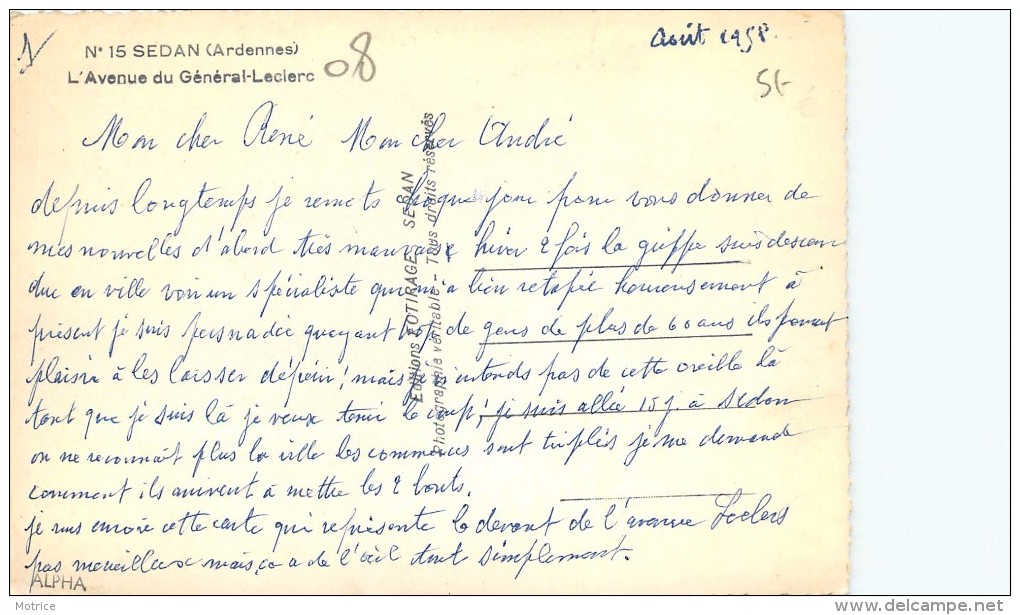 N° 15 SEDAN (Ardennes)
L'Avenue du Général-Leclerc
08
Août 1958.
Mon cher René Mon cher André
depuis longtemps je remets chaque jour pour vous donner de
mes nouvelles d'abord très mauvais hiver 2 fois la grippe suis descen
due en ville voir un spécialiste qui m'a bien retapée heureusement à
présent je suis persuadée qu'ayant trop de gens de plus de 60 ans ils prennent
plaisir à les laisser dépérir! mais je n'entends pas de cette oreille là
tant que je suis là je veux tenir le coup! je suis allée 15 j. à Sedan
on ne reconnait plus la ville les commerces sont triplés je me demande
comment ils arrivent à mettre les 2 bouts.
je vous envoie cette carte qui représente le devant de l'avenue Leclers
pas merveilleux mais ça a de l'oeil tout simplement.
Editions FOTIRAGE, SEDAN
Photographie véritable - Tous droits réservés
ALPHA
Motrice
http://www.delcampe.net